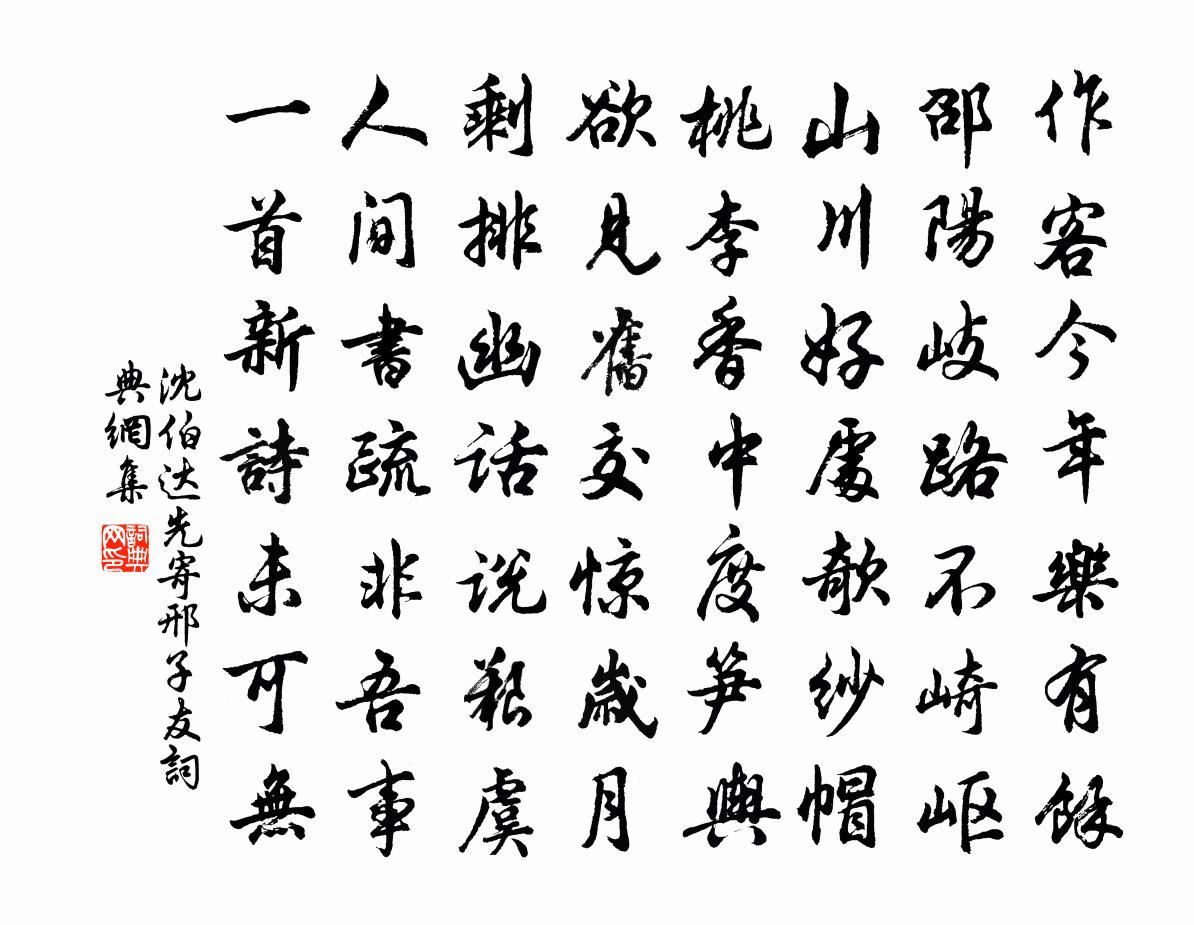 作客今年樂有餘
邵陽岐路不崎嶇
山川好處欹紗帽
桃李香中度笋輿
欲見舊交惊歲月
剩排幽話说艱虞
人间書疏非吾事
一首新詩未可無
沈伯达先寄邢子友詞
典網集
詞典
网印